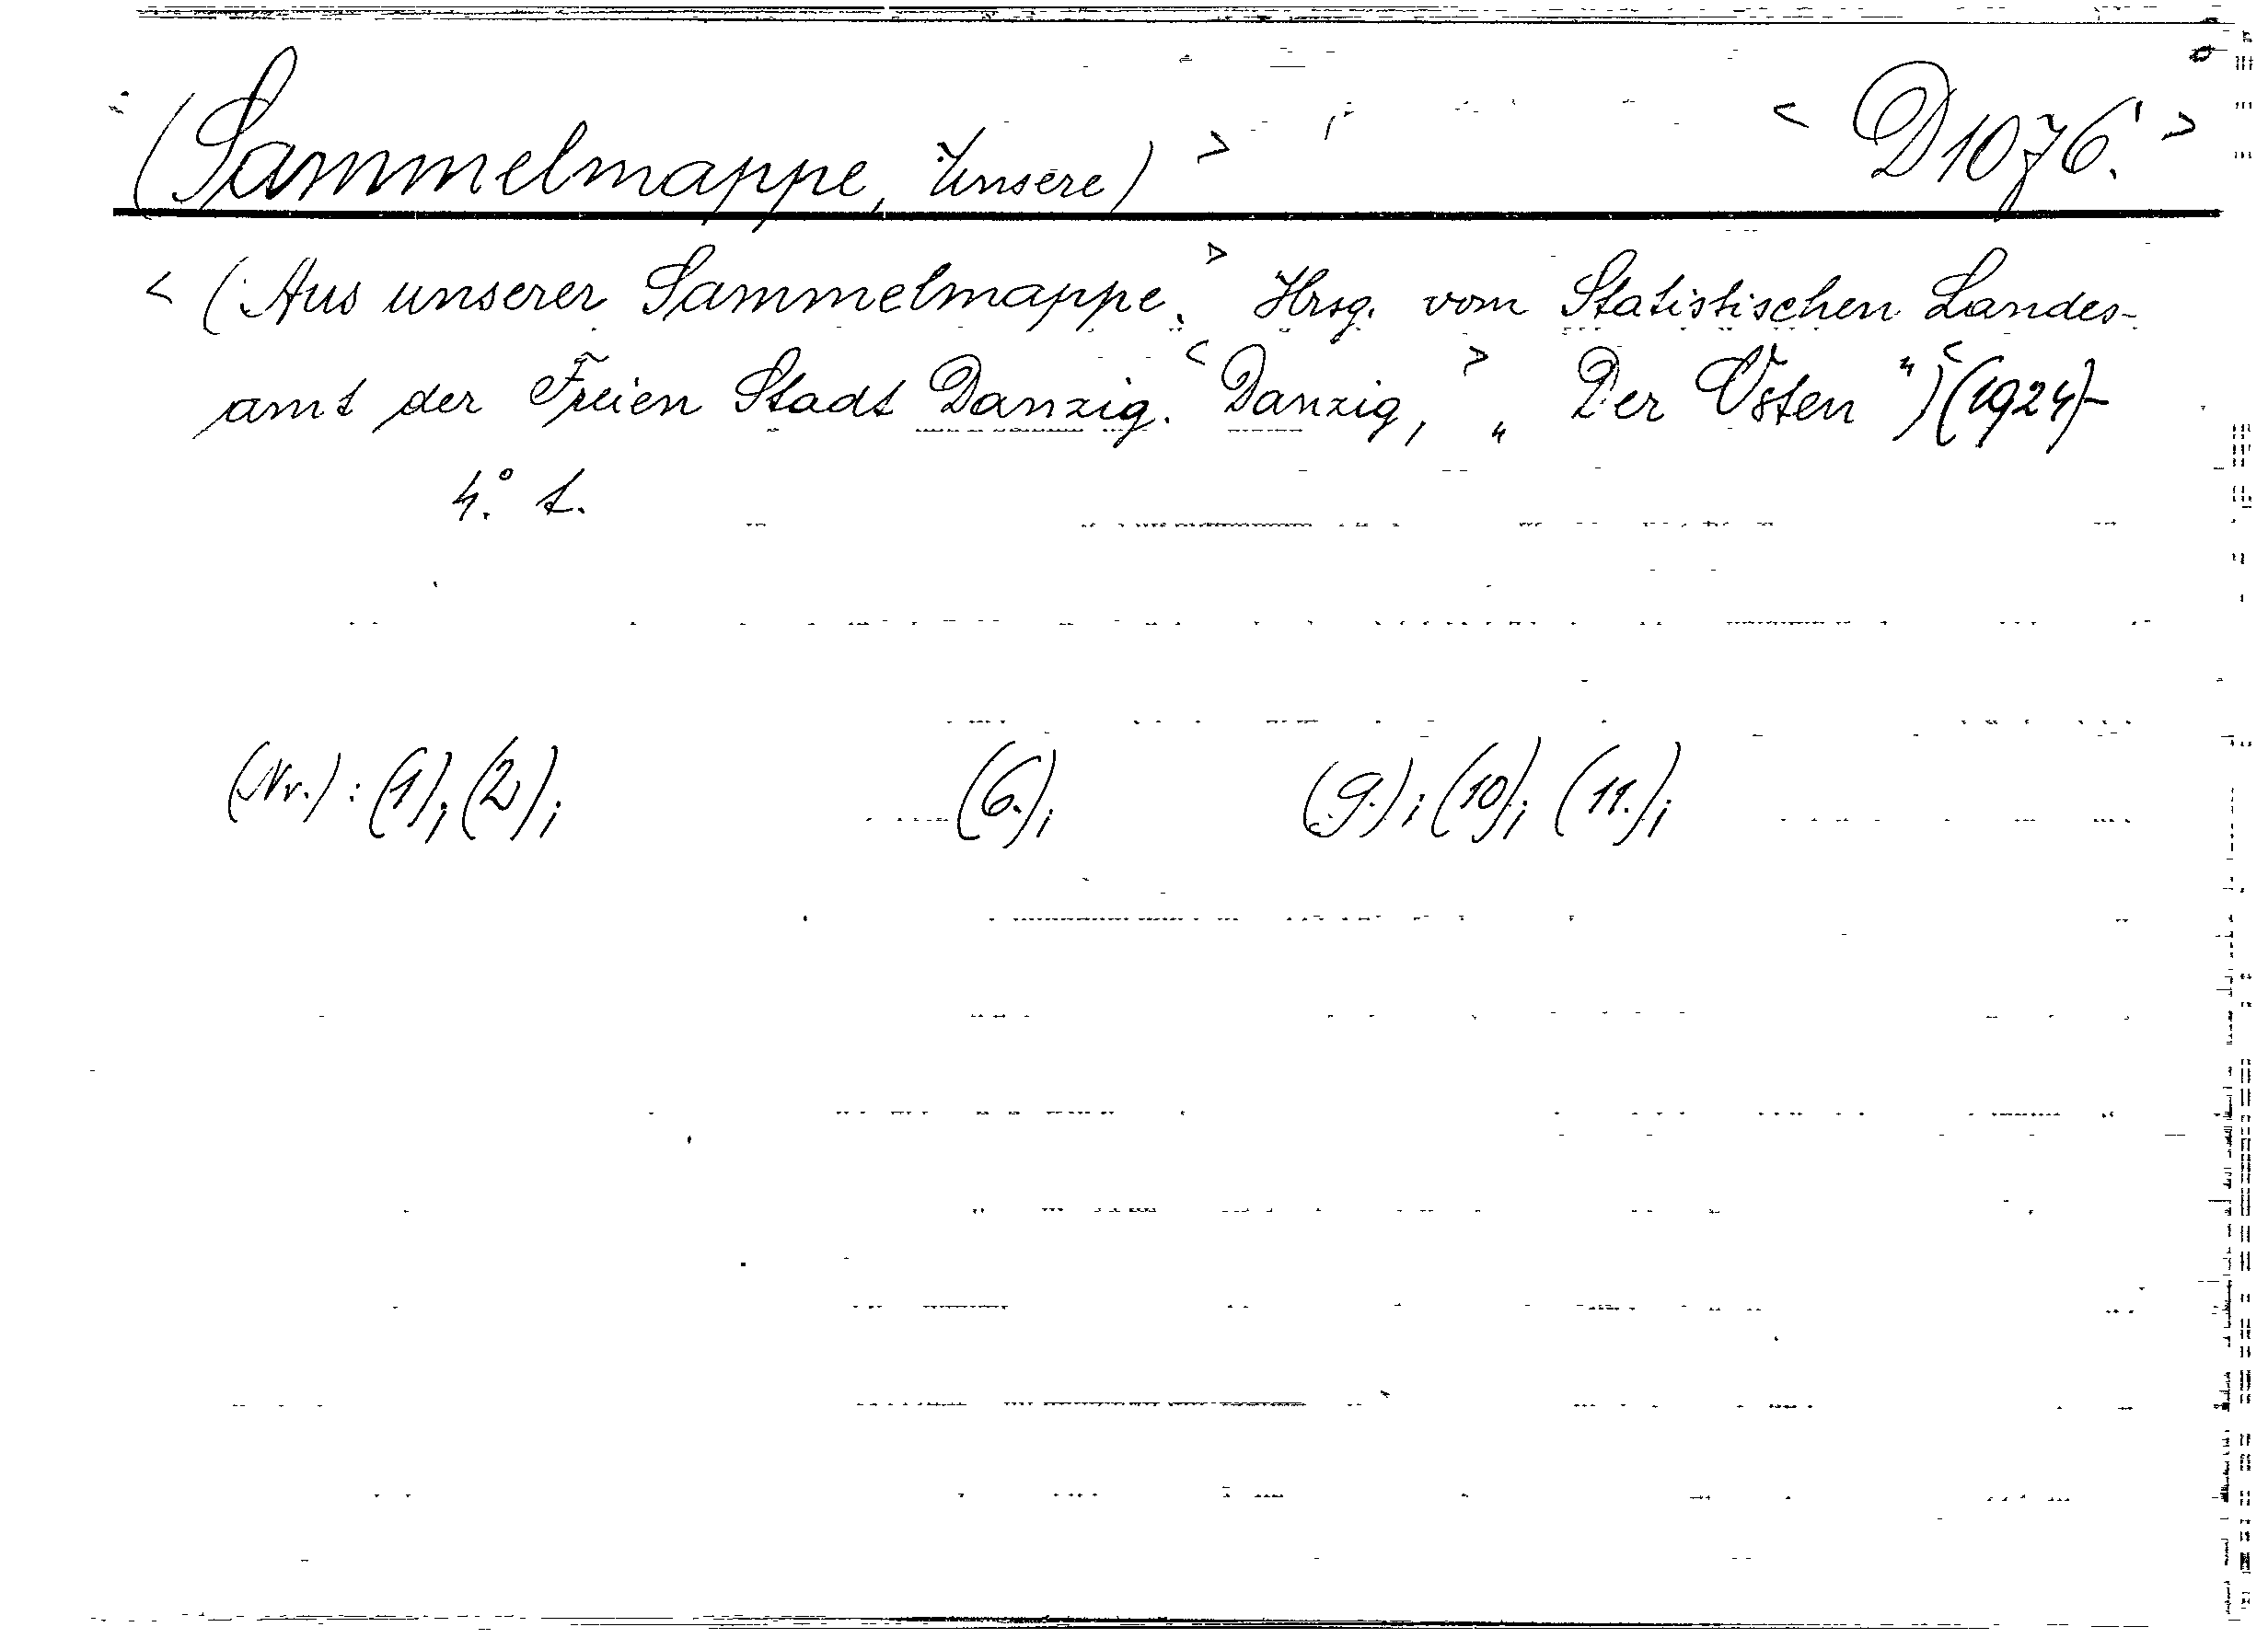 (Sammelmappe, Unsere) > < D1076. >
< (Aus unserer Sammelmappe. > Hrsg. vom Statistischen Landes-
amt der Freien Stadt Danzig. < Danzig, > „Der Osten") < (1924)-
4.° t.
(Nr.): (1); (2); (6.); (9.); (10); (11.);